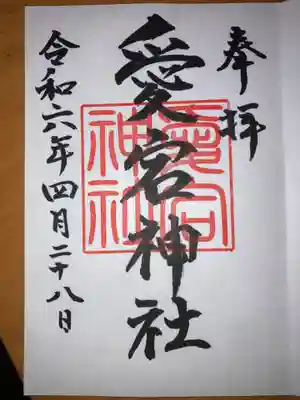 奉拝
愛宕神社
愛宕
神社
令和六年四月二十八日